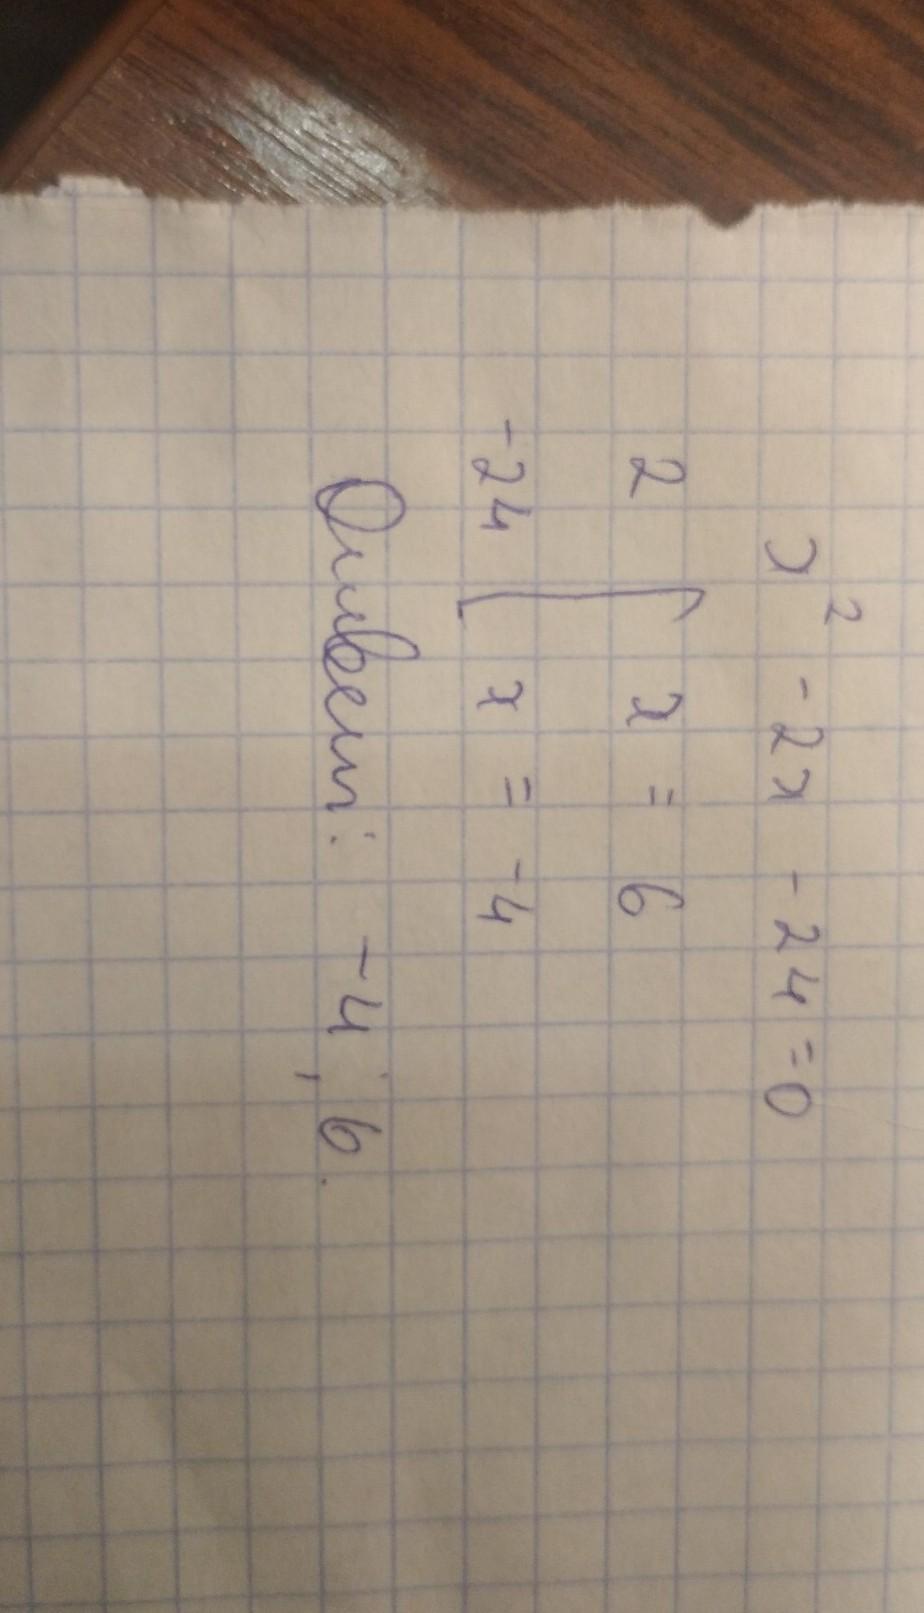 x² - 2x - 24 = 0
2 [ x = 6
-24 [ x = -4
Ответ: -4; 6.